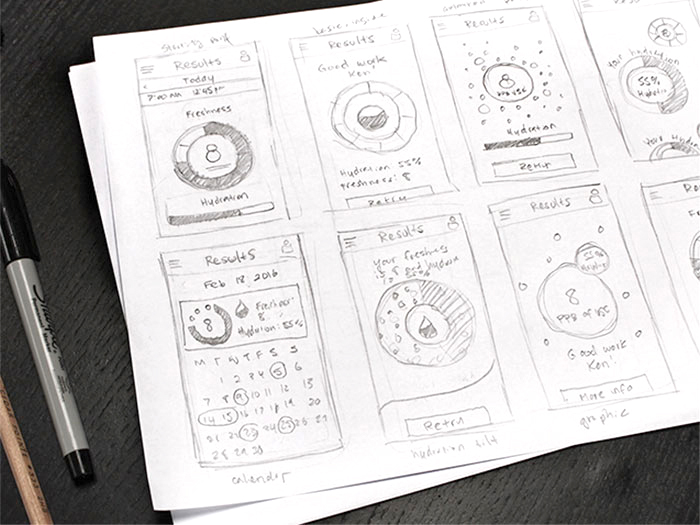 Results
Today
7:00 AM 12:45pm
Freshness
8
Hydration
Results
Good work
Ken!
Hydration: 55%
freshness: 8
Retry
Results
8
Hydration
Retry
Your Hydration
55%
Your Hydration
Results
Feb 18 2016
8
Freshness:
8
Hydration: 55%
M T W T F S S
1 2 3 4 5 6
7 8 9 10 11 12 13
14 15 16 17 18 19 20
21 22 23 24 25 26
28 29 30
calender
Results
your freshness
is 8 and hydration
is 55%
Retry
hydration tilt
Results
55%
8
Good work
Ken!
More info
graphic
Res